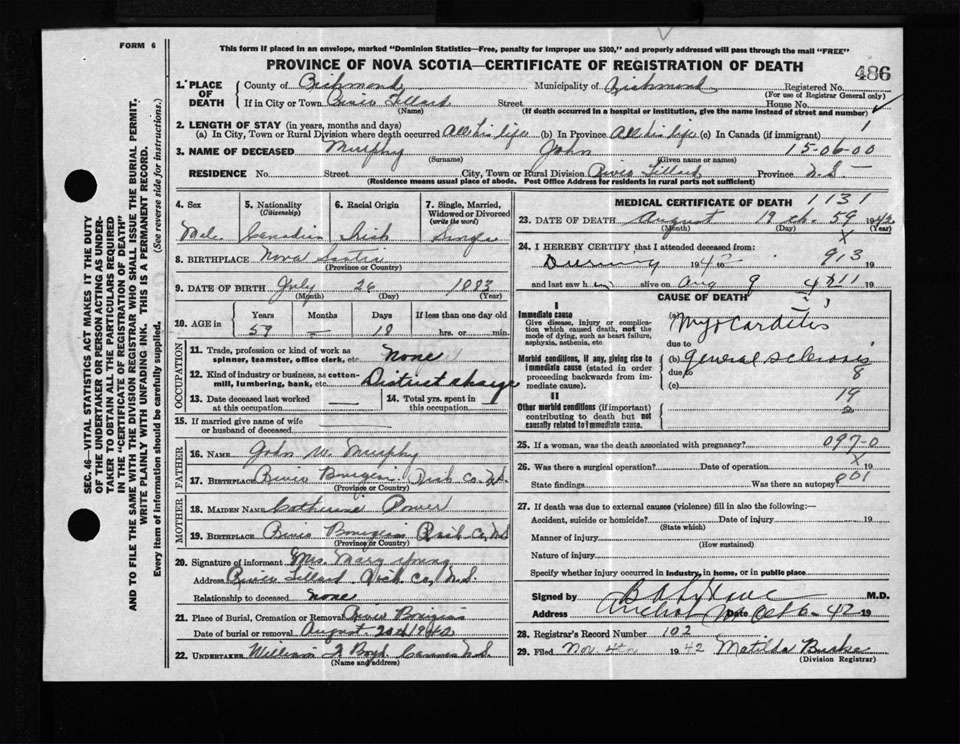 FORM 6
This form if placed in an envelope, marked "Dominion Statistics—Free, penalty for improper use $300," and properly addressed will pass through the mail "FREE"
PROVINCE OF NOVA SCOTIA—CERTIFICATE OF REGISTRATION OF DEATH
486
1. PLACE OF DEATH
County of Richmond Municipality of Richmond Registered No.
(For use of Registrar General only)
If in City or Town River Tillard Street House No.
(Name) (If death occurred in a hospital or institution, give the name instead of street and number)
2. LENGTH OF STAY (in years, months and days)
1
(a) In City, Town or Rural Division where death occurred All his life (b) In Province All his life (c) In Canada (if immigrant)
3. NAME OF DECEASED Murphy John 15-06-00
(Surname) (Given name or names)
RESIDENCE No. Street City, Town or Rural Division River Tillard Province N.S.
(Residence means usual place of abode. Post Office Address for residents in rural parts not sufficient)
4. Sex
Mal.
5. Nationality (Citizenship)
Canadian
6. Racial Origin
Irish
7. Single, Married, Widowed or Divorced (write the word)
Single
8. BIRTHPLACE Nova Scotia
(Province or Country)
9. DATE OF BIRTH July 26 1883
(Month) (Day) (Year)
10. AGE in
Years Months Days If less than one day old
59 — 18 hrs. or min.
OCCUPATION
11. Trade, profession or kind of work as spinner, teamster, office clerk, etc. None
12. Kind of industry or business, as cotton-mill, lumbering, bank, etc. District charge
13. Date deceased last worked at this occupation —
14. Total yrs. spent in this occupation —
15. If married give name of wife or husband of deceased —
FATHER
16. NAME John W. Murphy
17. BIRTHPLACE River Bourgeois Rich Co. N.S.
(Province or Country)
MOTHER
18. MAIDEN NAME Catherine Power
19. BIRTHPLACE River Bourgeois Rich Co, N.S
(Province or Country)
20. Signature of informant Mrs. Mary Young
Address River Tillard Rich Co, N.S.
Relationship to deceased None
21. Place of Burial, Cremation or Removal River Bourgeois
Date of burial or removal August 1942
22. UNDERTAKER William J Boyd N.S.
(Name and address)
MEDICAL CERTIFICATE OF DEATH 1131
23. DATE OF DEATH August 19 th. 59 1942
(Month) (Day) (Year)
X
24. I HEREBY CERTIFY that I attended deceased from:
During 1942 913 19
and last saw him alive on Aug 9 19
CAUSE OF DEATH
I
Immediate cause
Give disease, injury or complication which caused death, not the mode of dying, such as heart failure, asphyxia, asthenia, etc.
(a) Myocarditis
due to
Morbid conditions, if any, giving rise to immediate cause (stated in order proceeding backwards from immediate cause).
(b) general sclerosis
due to 8
(c)
II
19
Other morbid conditions (if important) contributing to death but not causally related to immediate cause.
2
25. If a woman, was the death associated with pregnancy? 097-0
X
26. Was there a surgical operation? Date of operation 19
State findings Was there an autopsy? 901
27. If death was due to external causes (violence) fill in also the following:—
Accident, suicide or homicide? Date of injury 19
(State which)
Manner of injury
(How sustained)
Nature of injury
Specify whether injury occurred in industry, in home, or in public place
Signed by M.D.
Address Arichat Date Oct 6 - 42 19
28. Registrar's Record Number 102
29. Filed Nov. 4th 1942 Matilda Burke
(Division Registrar)
SEC. 46—VITAL STATISTICS ACT MAKES IT THE DUTY
OF THE UNDERTAKER OR PERSON ACTING AS UNDER-
TAKER TO OBTAIN ALL THE PARTICULARS REQUIRED
IN THE "CERTIFICATE OF REGISTRATION OF DEATH"
AND TO FILE THE SAME WITH THE DIVISION REGISTRAR WHO SHALL ISSUE THE BURIAL PERMIT.
WRITE PLAINLY WITH UNFADING INK. THIS IS A PERMANENT RECORD.
Every item of information should be carefully supplied. (See reverse side for instructions.)